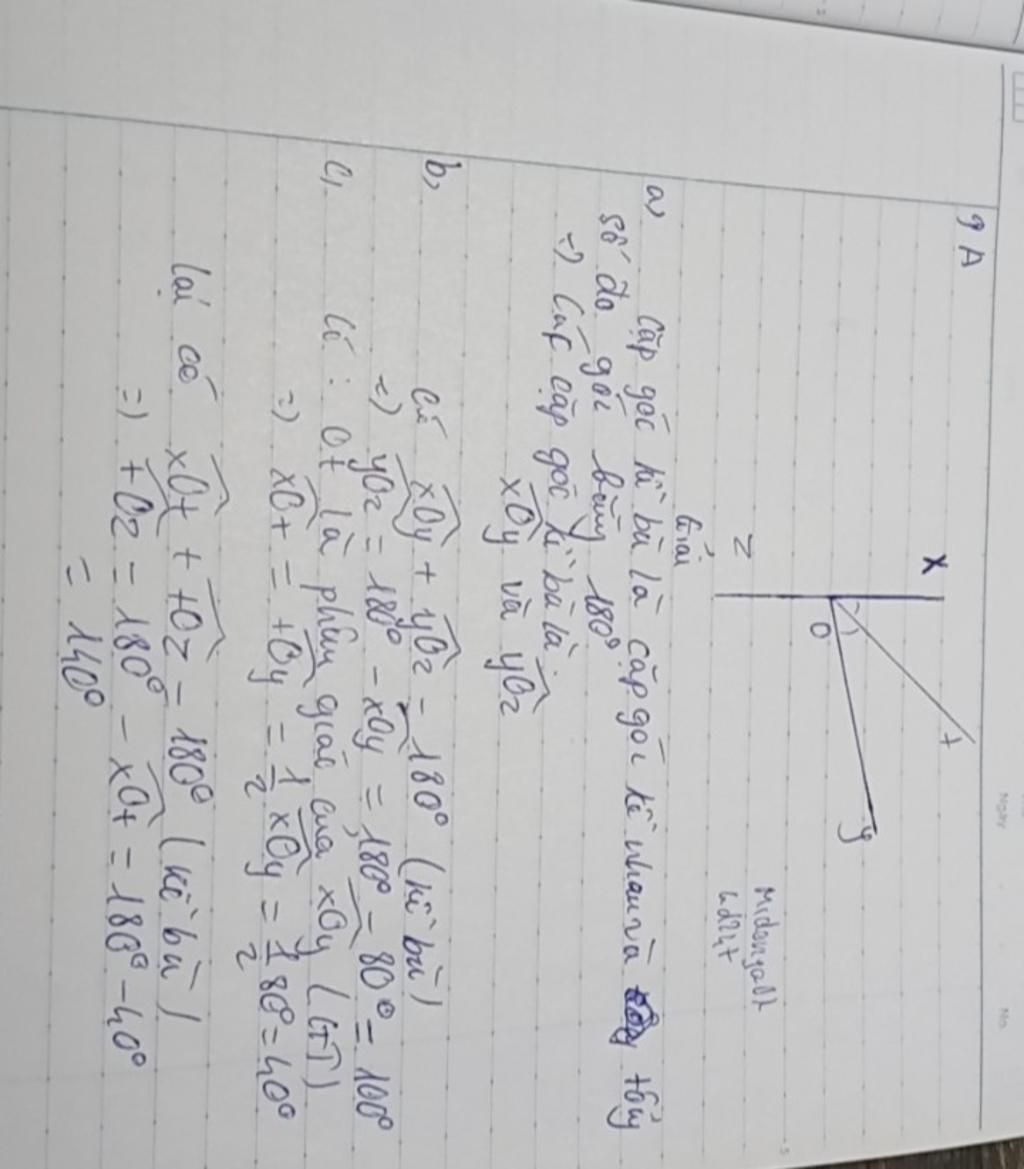 9A
x
t
y
O
z
Giải
a) Cặp góc kề bù là cặp góc kề nhau và tổng
số đo góc bằng 180°
=) Các cặp góc kề bù là:
xOy và yOz
b, Có xOy + yOz = 180° (kề bù)
=) yOz = 180° - xOy = 180° - 80° = 100°
c, Có: Ot là phân giác của xOy (GT)
=) xOt = tOy = 1/2 xOy = 1/2 80° = 40°
Lại có xOt + tOz = 180° (kề bù)
=) tOz = 180° - xOt = 180° - 40°
= 140°
Ngày
No